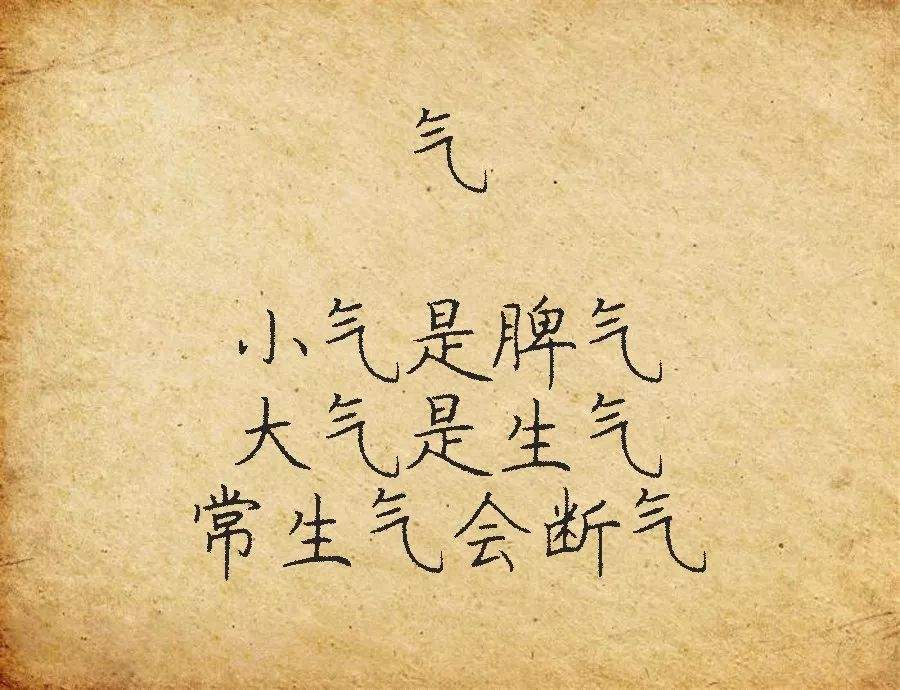 气
小气是脾气
大气是生气
常生气会断气